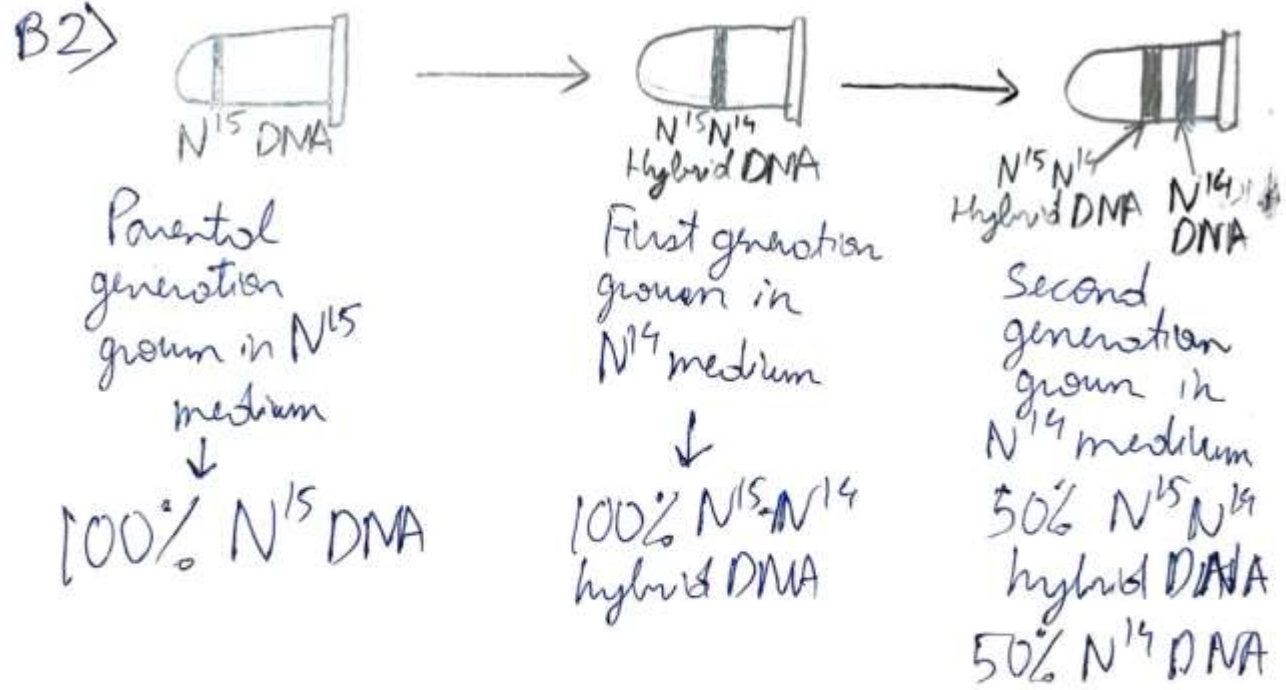 B2)
N¹⁵ DNA
Parental
generation
grown in N¹⁵
medium
↓
100% N¹⁵ DNA
N¹⁵N¹⁴
Hybrid DNA
First generation
grown in
N¹⁴ medium
↓
100% N¹⁵-N¹⁴
hybrid DNA
N¹⁵N¹⁴
Hybrid DNA
N¹⁴
DNA
Second
generation
grown in
N¹⁴ medium
50% N¹⁵N¹⁴
hybrid DNA
50% N¹⁴ DNA